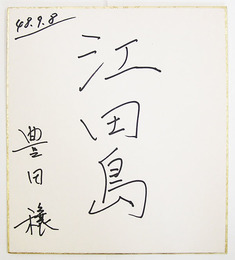 48.9.8
江田島
豊田穣